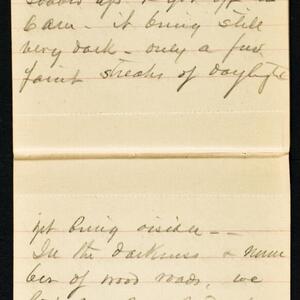 6 am - it being still
very dark - only a few
faint streaks of daylight
yet being visible --
In the darkness & num
ber of wood roads, we